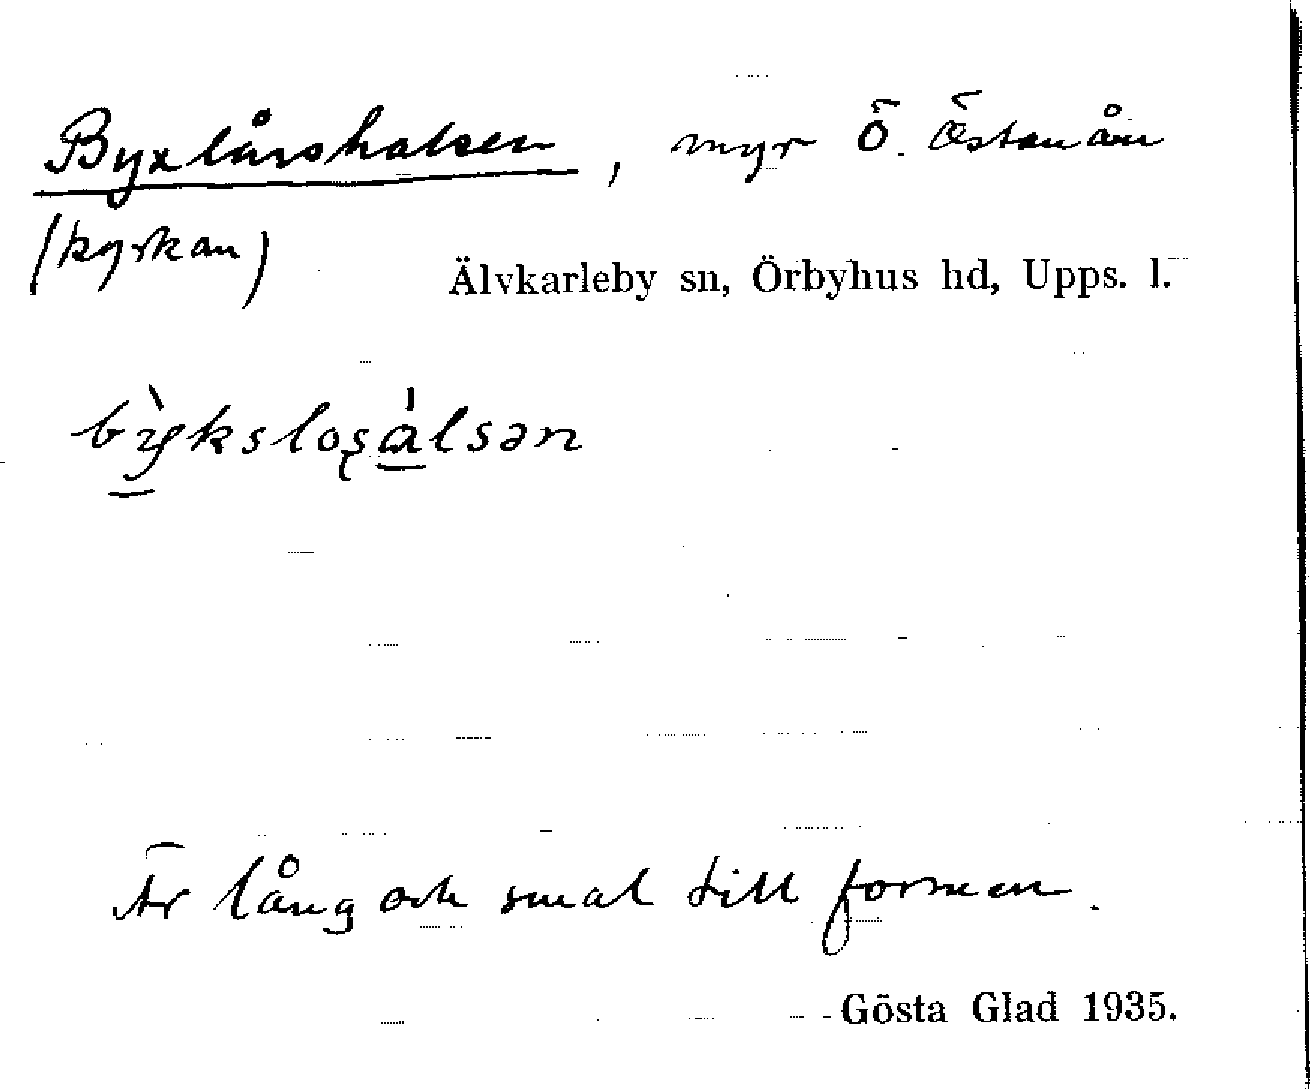 Byxlårshalsen, myr Ö. Östanån
(kyrkan)
Älvkarleby sn, Örbyhus hd, Upps. l.
bỳksloʂálsən
Är lång och smal till formen.
Gösta Glad 1935.